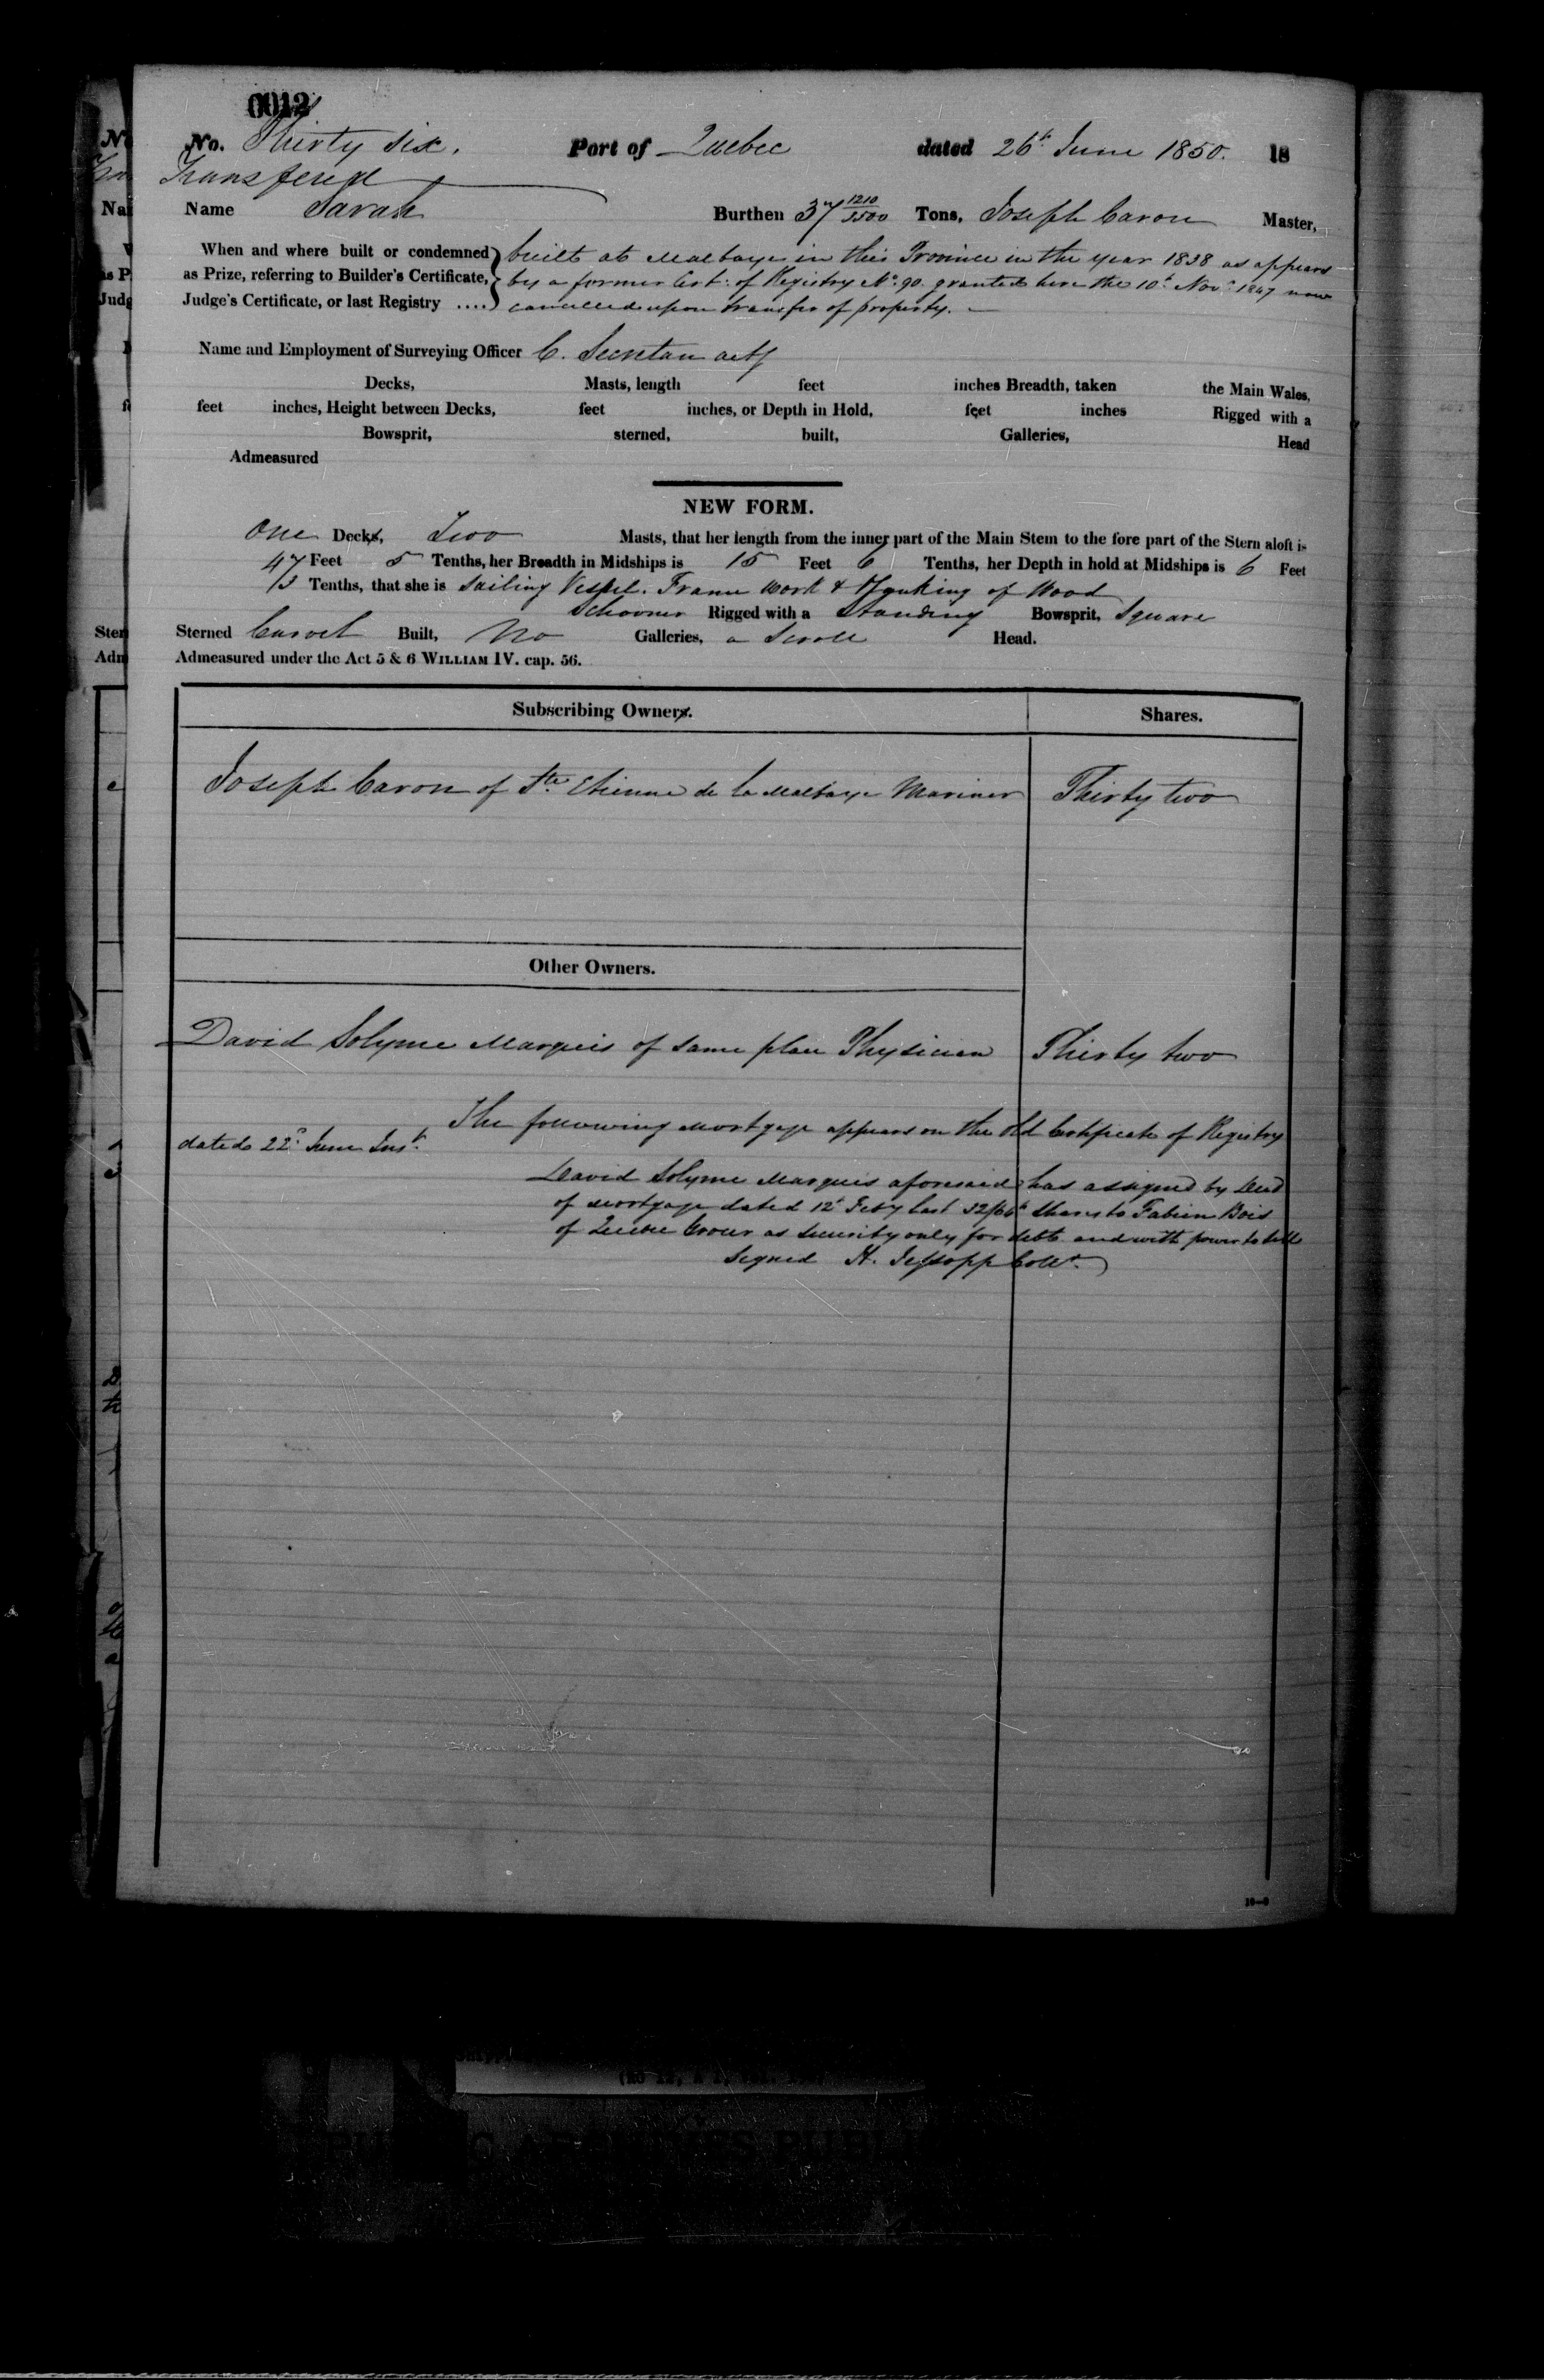 0012
No. Thirty Six. Port of Quebec dated 26th June 1850. 18
Transfered
Name Sarah Burthen 37 1210/3500 Tons, Joseph Caron Master,
When and where built or condemned built at Malbaye in this Province in the year 1838 as appears
as Prize, referring to Builder's Certificate, by a former Cert: of Registry No. 90. granted here the 10th Novr 1847 now
Judge's Certificate, or last Registry .... cancelled upon transfer of property.
Name and Employment of Surveying Officer C. Secretan actg
Decks, Masts, length feet inches Breadth, taken the Main Wales,
feet inches, Height between Decks, feet inches, or Depth in Hold, feet inches Rigged with a
Bowsprit, sterned, built, Galleries, Head
Admeasured
NEW FORM.
One Decks, Two Masts, that her length from the inner part of the Main Stem to the fore part of the Stern aloft is
47 Feet 5 Tenths, her Breadth in Midships is 15 Feet 6 Tenths, her Depth in hold at Midships is 6 Feet
3 Tenths, that she is Sailing Vessel. Frame work & Planking of Wood
Schooner Rigged with a Standing Bowsprit, Square
Sterned Carvel Built, No Galleries, a Scroll Head.
Admeasured under the Act 5 & 6 WILLIAM IV. cap. 56.
Subscribing Owners. Shares.
Joseph Caron of Ste. Etienne de la Malbaye Mariner Thirty two
Other Owners.
David Solyme Marquis of same place Physician Thirty two
The following Mortgage appears on the old Certificate of Registry
dated 22d June Inst.
David Solyme Marquis aforesaid has assigned by Deed
of Mortgage dated 12th Feby last 32/64th Shares to Fabien Bois
of Quebec Grocer as Security only for debt and with power to sell
Signed H. Jessopp Collr.
10—9